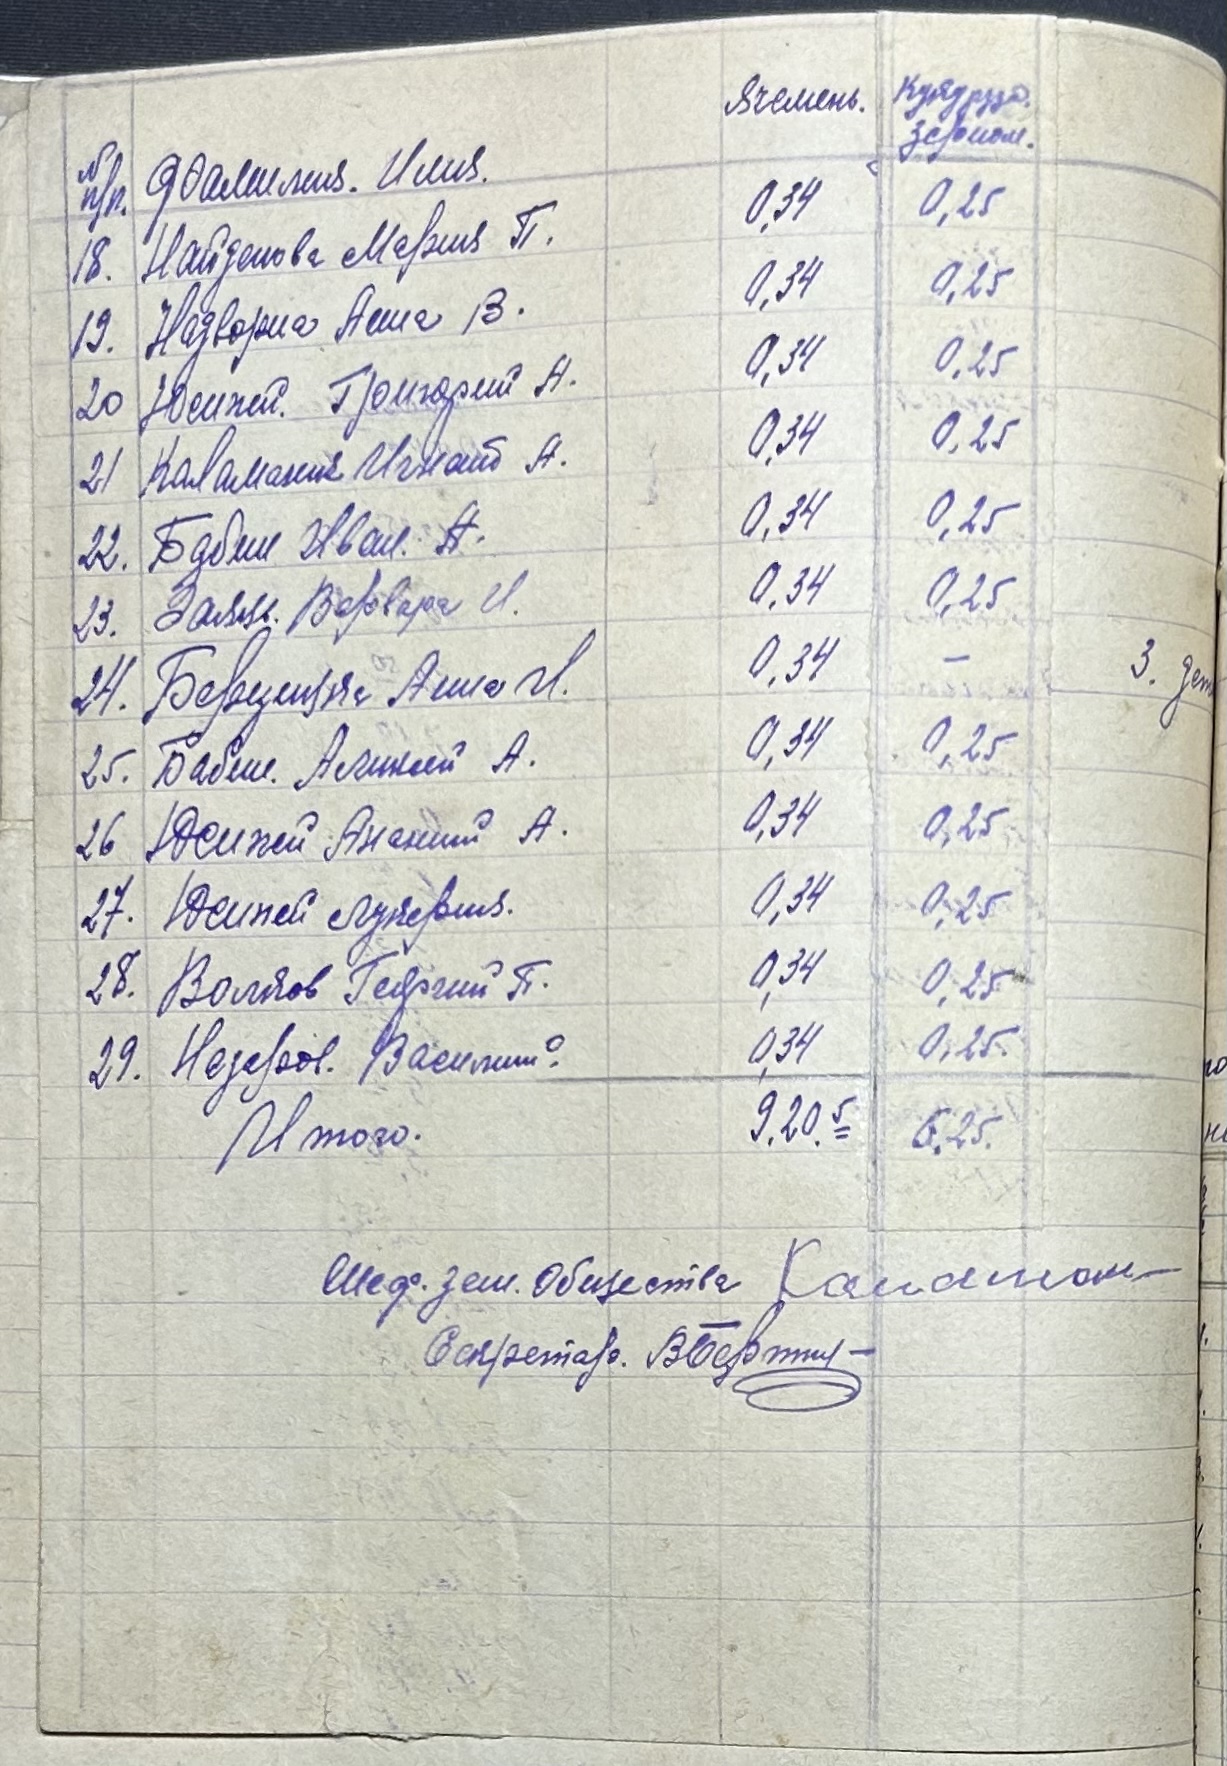 Ячмень. Кукуруза зерном.
№ п/п. Фамилия. Имя.
18. Найденова Мария П. 0,34 0,25
19. Надворна Анна В. 0,34 0,25
20 Юсипей. Григорий А. 0,34 0,25
21 Каламаник Игнат А. 0,34 0,25
22. Бабин Иван. А. 0,34 0,25
23. Заяць. Варвара И. 0,34 0,25
24. Анна И. 0,34 – 3.
25. Бабин. Алексей А. 0,34 0,25
26 Юсипей Ананий А. 0,34 0,25
27. Юсипей Лукерия. 0,34 0,25
28. Волков Георгий П. 0,34 0,25
29. Назаров. Василий. 0,34 0,25.
Итого. 9,20.5 6,25.
зем. Общества
Секретарь.